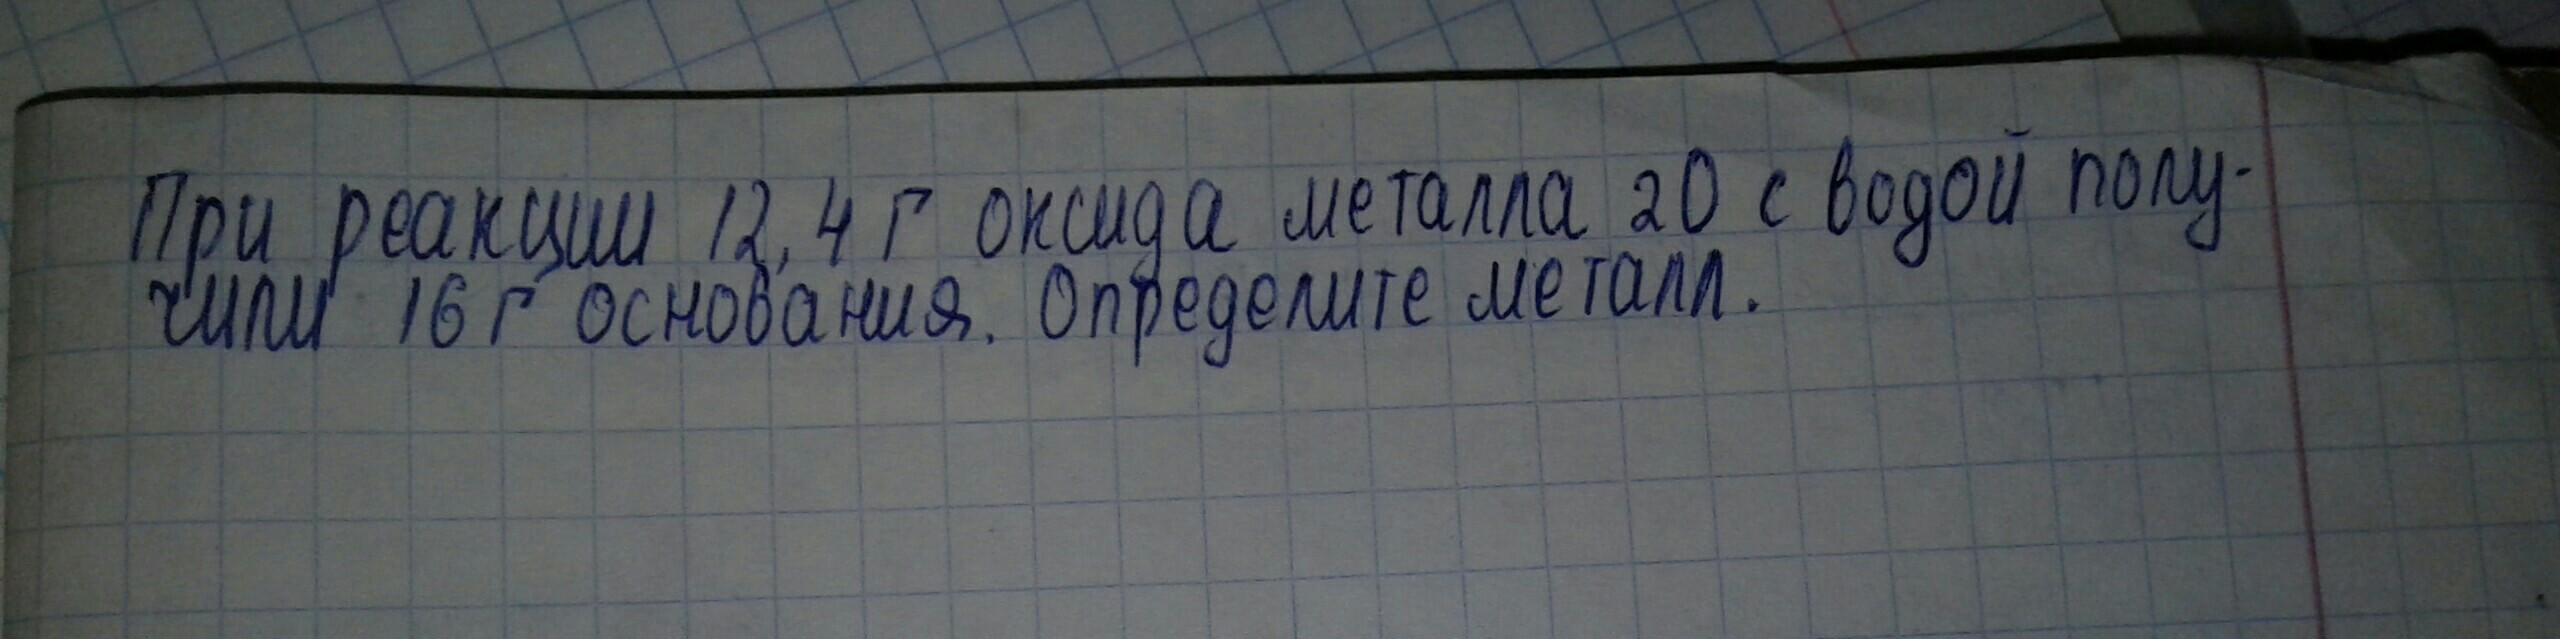 При реакции 12,4 г оксида металла 20 с водой полу-
чили 16 г основания. Определите металл.